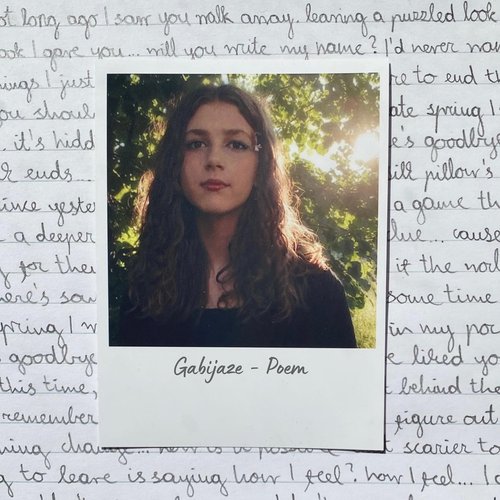 ot long ago I saw you walk away. leaving a puzzled look
ook I gave you... will you write my name? I'd never nam
ings I just re to end th
you shoul ate spring I
. it's hidd e's goodbye
ends... pillow's
since yeste a game th
a deeper lue... cause
for the it the
here's sou some time
pring I in my po
goodbye e liked you
Gabijaze - Poem
this time, behind the
remember figure out
ning change... scarier to
g to leave is saying how I feel? how I feel... I